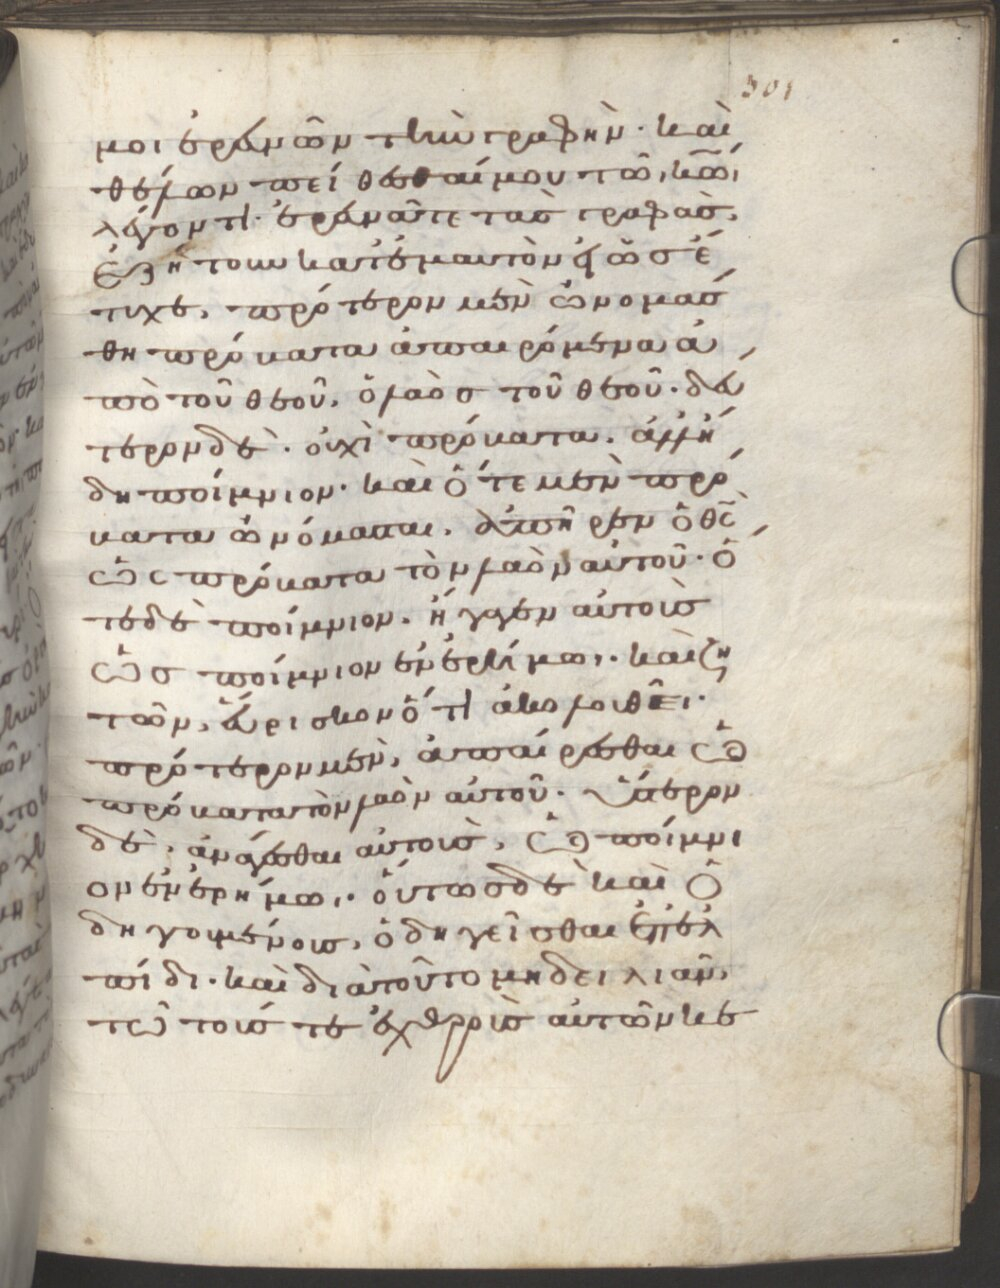 μοι ἐρευνῶν τὴν γραφὴν· καὶ
θέλων πείθεσθαί μου τῶ κ̅ω̅
λέγοντι· ἐρευνᾶτε τὰς γραφάς.
ἐζήτουν κατ' ἐμαυτὸν πῶς ἐ
τυχε, πρότερον μὲν ὠνομάσ
θη πρόβατα ἀπαιρόμενα ἀ
πὸ τοῦ θεοῦ, ὁ λαὸς τοῦ θεοῦ· δεύ
τερον δὲ· οὐχὶ πρόβατα, ἀλλ' ἤ
δη ποίμνιον· καὶ ὅτε μὲν πρό
βατα ὠνόμασται, ἀπῆρεν ὁ θ̅ς̅
ὡς πρόβατα τὸν λαὸν αὐτοῦ· ὅ
τε δὲ ποίμνιον, ἤγαγεν αὐτοὺς
ὡς ποίμνιον ἐν ἐρήμω· καὶ ζη
τῶν, εὕρισκον ὅτι ἀκολουθεῖ·
πρότερον μὲν, ἀπαίρεσθαι ὡς
πρόβατα τὸν λαὸν αὐτοῦ· ὕστερον
δὲ, ἀνάγεσθαι αὐτοὺς, ὡς ποίμνι
ον ἐν ἐρήμω· οὕτως δὲ καὶ ὁ
δηγουμένοις, ὁδηγεῖσθαι ἐπ' ἐλ
πίδι· καὶ διὰ τοῦτο μὴ δειλιᾶν,
τῶ τούς τε ἐχθροὺς αὐτῶν κε